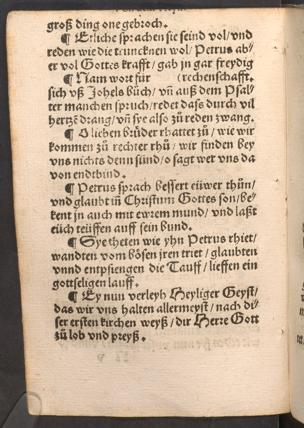 groß ding one gebroch.
¶ Etliche sprachen sie seind vol/vnd
reden wie die truncknen wol/Petrus ab/
er vol Gottes krafft/gab jn gar freydig
¶ Nam wort für (rechenschafft.
sich vß Johels bůch/vñ auß dem Psal/
ter manchen spruch/redet dass durch vil
hertzẽ drang/vñ sye also zů reden zwang.
¶ O lieben brůder rhattet zů/wie wir
kommen zů rechter rhů/wir finden bey
vns nichts denn sünd/o sagt wer vns da
von endtbind.
¶ Petrus sprach bessert eüwer thůn/
vnd glaubt in Christum Gottes son/be/
kent jn auch mit ewrem mund/vnd laßt
eüch teüffen auff sein bund.
¶ Sye theten wie yhn Petrus rhiet/
wandten vom bösen jren triet/glaubten
vnnd entpfiengen die Tauff/lieffen ein
gottseligen lauff.
¶ Ey nun verleyh Heyliger Geyst/
das wir vns halten allermeyst/nach di/
ser ersten kirchen weyß/dir Herre Gott
zů lob vnd preyß.